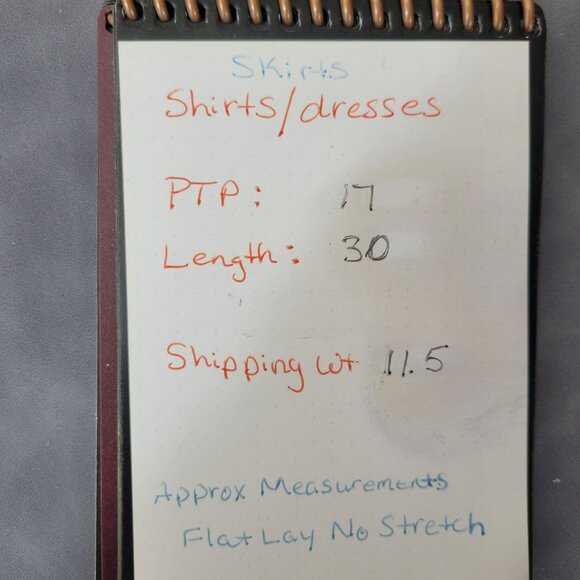 Skirts
Shirts/dresses
PTP: 17
Length: 30
Shipping wt 11.5
Approx Measurements
Flat Lay No Stretch